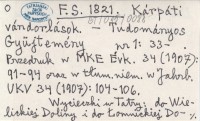 O F.S. 1821. Kárpáti
vándorlások. – Tudományos
Gyűjtemény nr 1: 33–
Przedruk w MKE Évk. 34 (1907):
91–94 oraz w tłum. niem. w Jahrb.
UKV 34 (1907): 104–106.
Wycieczki w Tatry: do Wie-
lickiej Doliny i do Łomnickiej Do-